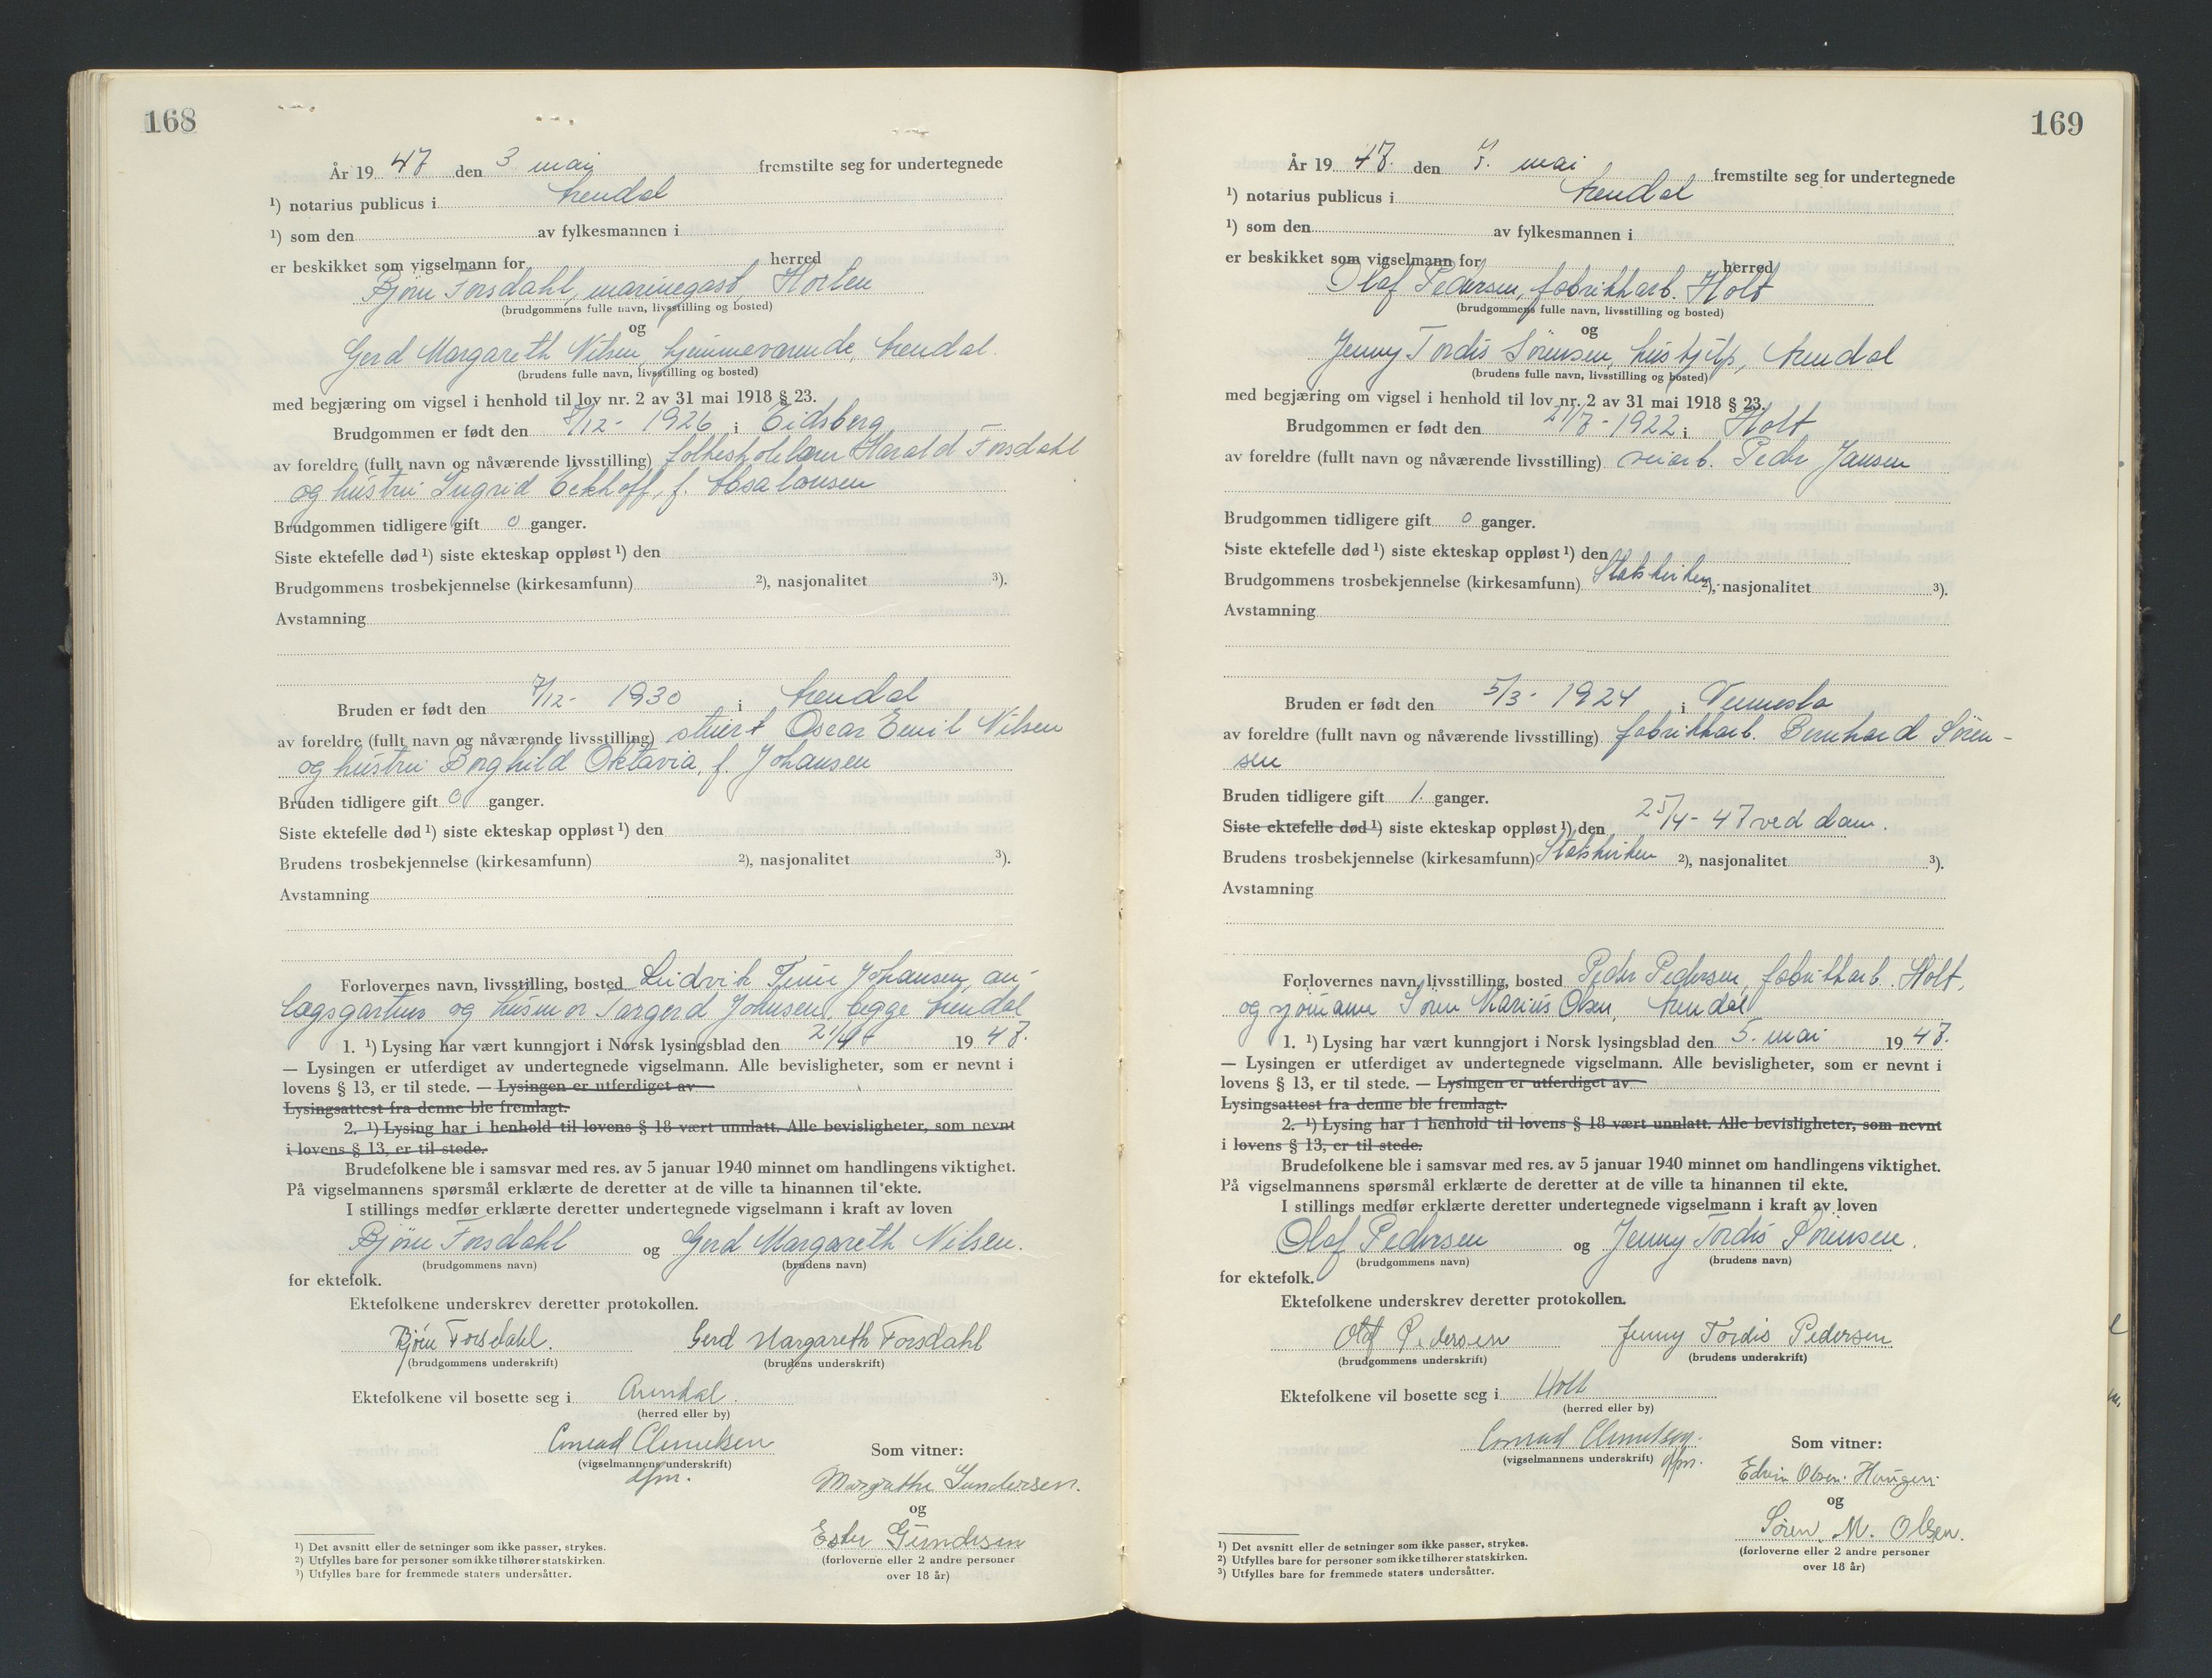 168
År 19 47 den 3 mai fremstilte seg for undertegnede
¹) notarius publicus i Arendal
¹) som den av fylkesmannen i
er beskikket som vigselmann for herred
Bjørn Forsdahl, marinegast, Horten
(brudgommens fulle navn, livsstilling og bosted)
og
Gerd Margareth Nilsen, hjemmeværende, Arendal.
(brudens fulle navn, livsstilling og bosted)
med begjæring om vigsel i henhold til lov nr. 2 av 31 mai 1918 § 23.
Brudgommen er født den 8/12- 1926 i Eidsberg
av foreldre (fullt navn og nåværende livsstilling) folkeskolelærer Harald Forsdahl
og hustru Ingrid Eckhoff, f. Absalonsen
Brudgommen tidligere gift 0 ganger.
Siste ektefelle død ¹) siste ekteskap oppløst ¹) den
Brudgommens trosbekjennelse (kirkesamfunn) ²), nasjonalitet ³).
Avstamning
Bruden er født den 7/12- 1930 i Arendal
av foreldre (fullt navn og nåværende livsstilling) stuert Oscar Emil Nilsen
og hustru Borghild Oktavia, f. Johansen
Bruden tidligere gift 0 ganger.
Siste ektefelle død ¹) siste ekteskap oppløst ¹) den
Brudens trosbekjennelse (kirkesamfunn) ²), nasjonalitet ³).
Avstamning
Forlovernes navn, livsstilling, bosted Ludvik Johansen, an-
lægsgartner og husmor Targerd Johnsen, begge Arendal
1. ¹) Lysing har vært kunngjort i Norsk lysingsblad den 21/4- 19 47.
— Lysingen er utferdiget av undertegnede vigselmann. Alle bevisligheter, som er nevnt i
lovens § 13, er til stede. — Lysingen er utferdiget av
Lysingsattest fra denne ble fremlagt.
2. ¹) Lysing har i henhold til lovens § 18 vært unnlatt. Alle bevisligheter, som nevnt
i lovens § 13, er til stede.
Brudefolkene ble i samsvar med res. av 5 januar 1940 minnet om handlingens viktighet.
På vigselmannens spørsmål erklærte de deretter at de ville ta hinannen til ekte.
I stillings medfør erklærte deretter undertegnede vigselmann i kraft av loven
Bjørn Forsdahl og Gerd Margareth Nilsen.
(brudgommens navn) (brudens navn)
for ektefolk.
Ektefolkene underskrev deretter protokollen.
Bjørn Forsdahl. Gerd Margareth Forsdahl
(brudgommens underskrift) (brudens underskrift)
Ektefolkene vil bosette seg i Arendal.
(herred eller by)
Conrad Clemetsen
(vigselmannens underskrift)
dfm.
Som vitner:
Margrethe Gundersen.
og
Ester Gundersen
(forloverne eller 2 andre personer
over 18 år)
¹) Det avsnitt eller de setninger som ikke passer, strykes.
²) Utfylles bare for personer som ikke tilhører statskirken.
³) Utfylles bare for fremmede staters undersåtter.
169
År 19 47. den 7. mai fremstilte seg for undertegnede
¹) notarius publicus i Arendal
¹) som den av fylkesmannen i
er beskikket som vigselmann for herred
Olaf Pedersen, fabrikkarb. Holt
(brudgommens fulle navn, livsstilling og bosted)
og
Jenny Tordis Sørensen, hushjelp, Arendal
(brudens fulle navn, livsstilling og bosted)
med begjæring om vigsel i henhold til lov nr. 2 av 31 mai 1918 § 23.
Brudgommen er født den 21/7-1922 i Holt
av foreldre (fullt navn og nåværende livsstilling) veiarb. Peder Jansen
Brudgommen tidligere gift 0 ganger.
Siste ektefelle død ¹) siste ekteskap oppløst ¹) den
Brudgommens trosbekjennelse (kirkesamfunn) Statskirken ²), nasjonalitet ³).
Avstamning
Bruden er født den 5/3- 1924 i Vennesla
av foreldre (fullt navn og nåværende livsstilling) fabrikkarb. Bernhard Søren-
sen
Bruden tidligere gift 1. ganger.
Siste ektefelle død ¹) siste ekteskap oppløst ¹) den 25/4- 47 ved dom.
Brudens trosbekjennelse (kirkesamfunn) Statskirken ²), nasjonalitet ³).
Avstamning
Forlovernes navn, livsstilling, bosted Peder Pedersen, fabrikkarb. Holt,
og sjømann Søren Marius Olsen, Arendal
1. ¹) Lysing har vært kunngjort i Norsk lysingsblad den 5. mai 19 47.
— Lysingen er utferdiget av undertegnede vigselmann. Alle bevisligheter, som er nevnt i
lovens § 13, er til stede. — Lysingen er utferdiget av
Lysingsattest fra denne ble fremlagt.
2. ¹) Lysing har i henhold til lovens § 18 vært unnlatt. Alle bevisligheter, som nevnt
i lovens § 13, er til stede.
Brudefolkene ble i samsvar med res. av 5 januar 1940 minnet om handlingens viktighet.
På vigselmannens spørsmål erklærte de deretter at de ville ta hinannen til ekte.
I stillings medfør erklærte deretter undertegnede vigselmann i kraft av loven
Olaf Pedersen og Jenny Tordis Sørensen.
(brudgommens navn) (brudens navn)
for ektefolk.
Ektefolkene underskrev deretter protokollen.
Olaf Pedersen Jenny Tordis Pedersen
(brudgommens underskrift) (brudens underskrift)
Ektefolkene vil bosette seg i Holt
(herred eller by)
Conrad Clemetsen.
(vigselmannens underskrift) dfm.
Som vitner:
Edvin Olsen Haugen.
og
Søren M. Olsen.
(forloverne eller 2 andre personer
over 18 år)
¹) Det avsnitt eller de setninger som ikke passer, strykes.
²) Utfylles bare for personer som ikke tilhører statskirken.
³) Utfylles bare for fremmede staters undersåtter.